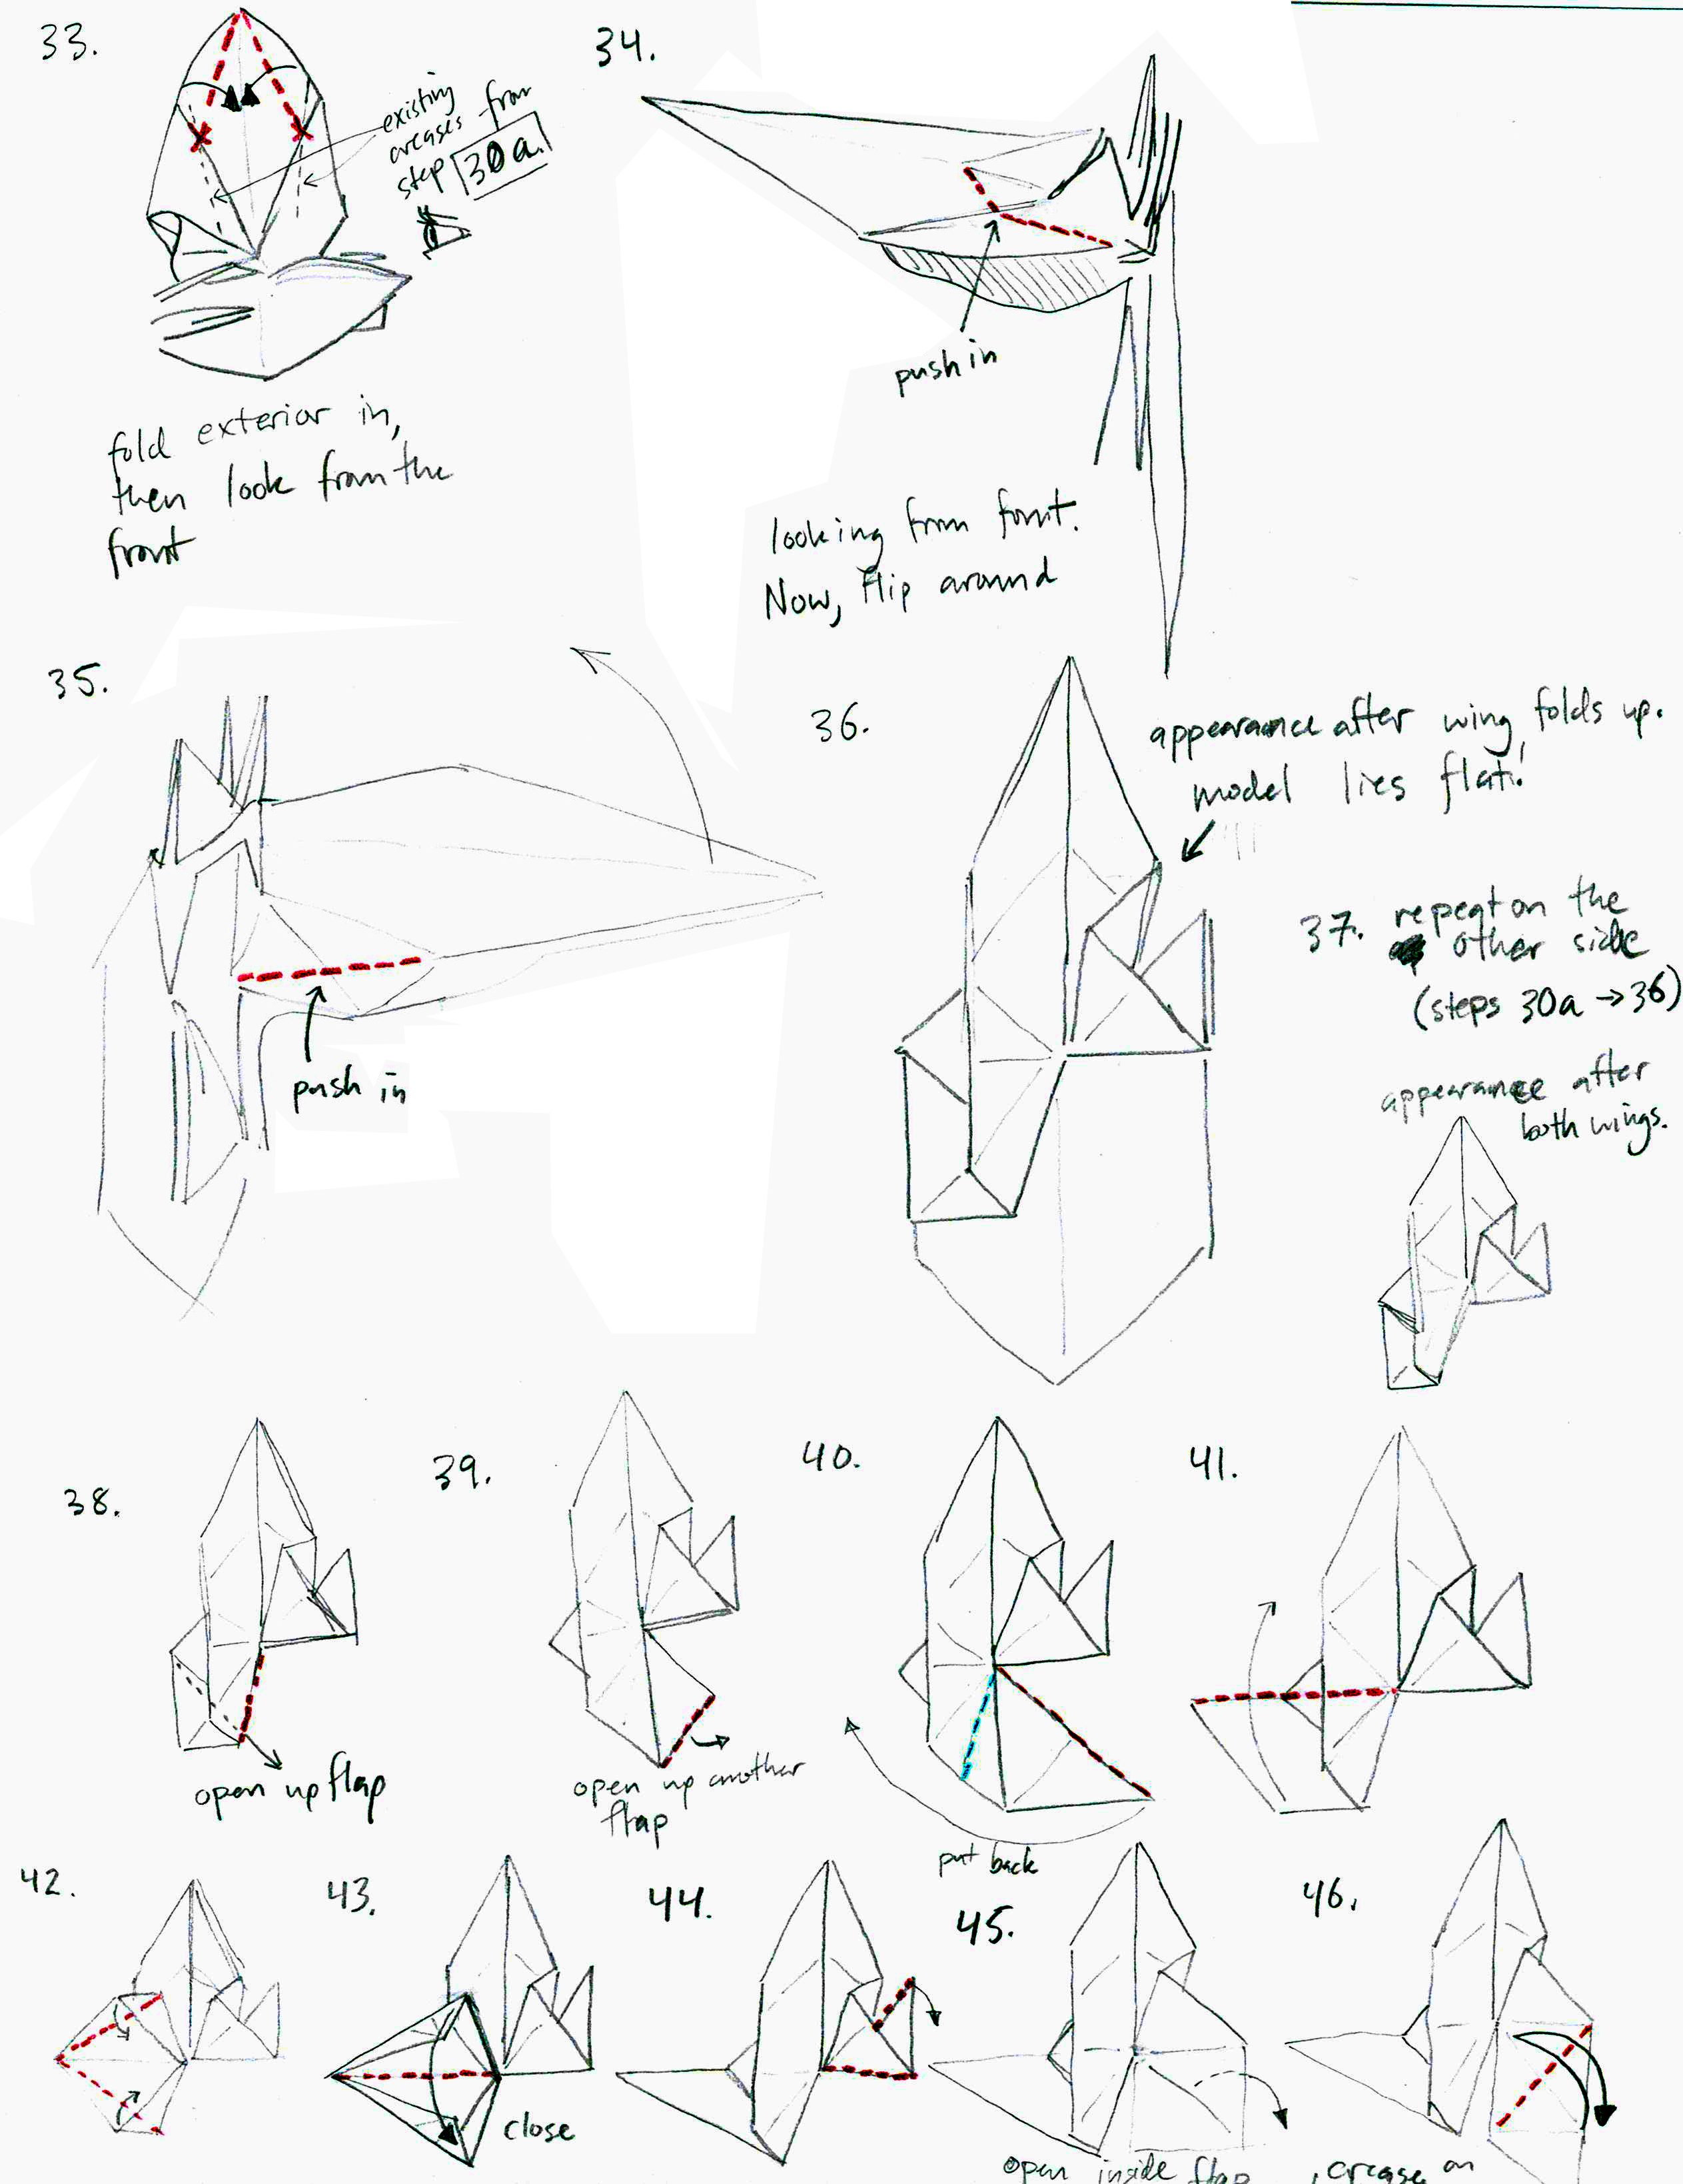 33.
existing
creases from
step 30a.
fold exterior in,
then look from the
front
34.
push in
looking from front.
Now, flip around
35.
push in
36.
appearance after wing folds up.
model lies flat!
37. repeat on the
other side
(steps 30a → 36)
appearance after
both wings.
38.
open up flap
39.
open up another
flap
40.
put back
41.
42.
43.
close
44.
45.
open inside flap
46.
crease on